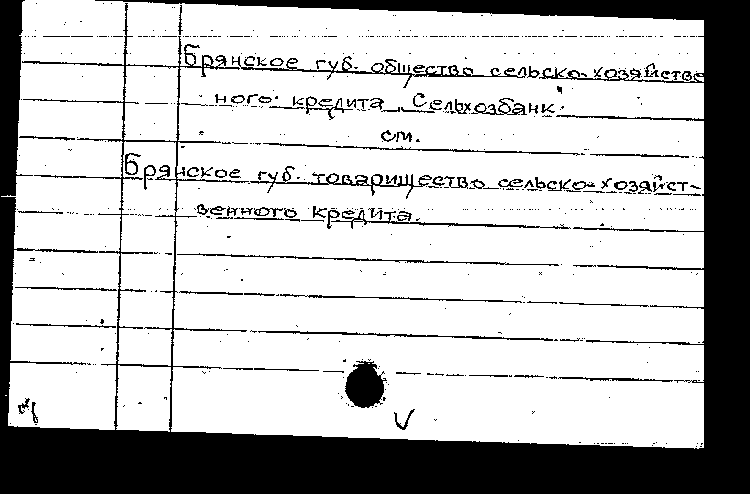 Брянское губ. общество сельско-хозяйстве
ного кредита „Сельхозбанк".
см.
Брянское губ. товарищество сельско-хозяйст-
венного кредита.